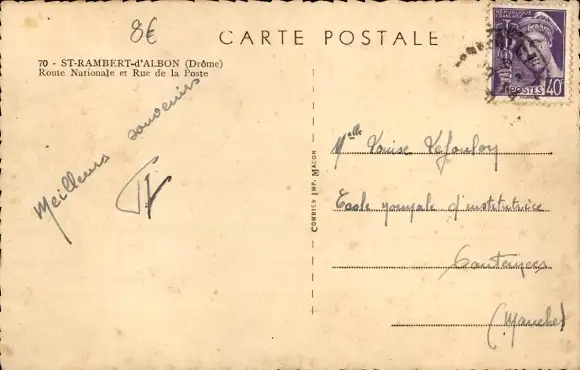 8€
CARTE POSTALE
70 - ST-RAMBERT-d'ALBON (Drôme)
Route Nationale et Rue de la Poste
REPUBLIQUE FRANÇAISE
POSTES 40c
Meilleurs souvenirs
COMBIER IMP. MACON
Melle Louise
Ecole normale d'institutrice
Coutances
(Manche)